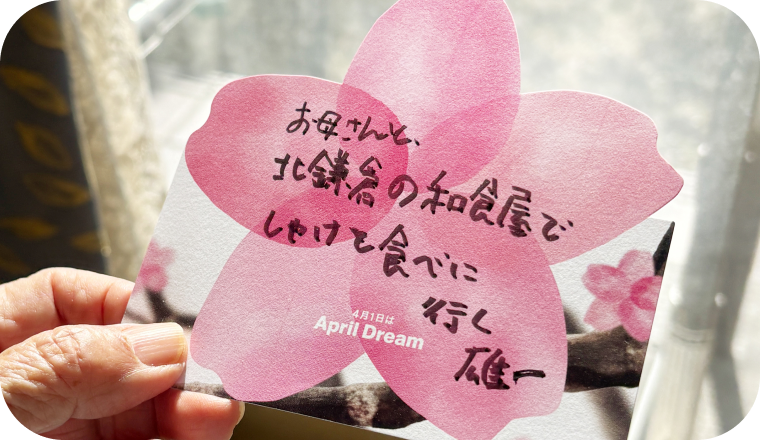 お母さんと、
北鎌倉の和食屋で
しゃけを食べに
行く
雄一
4月1日は
April Dream